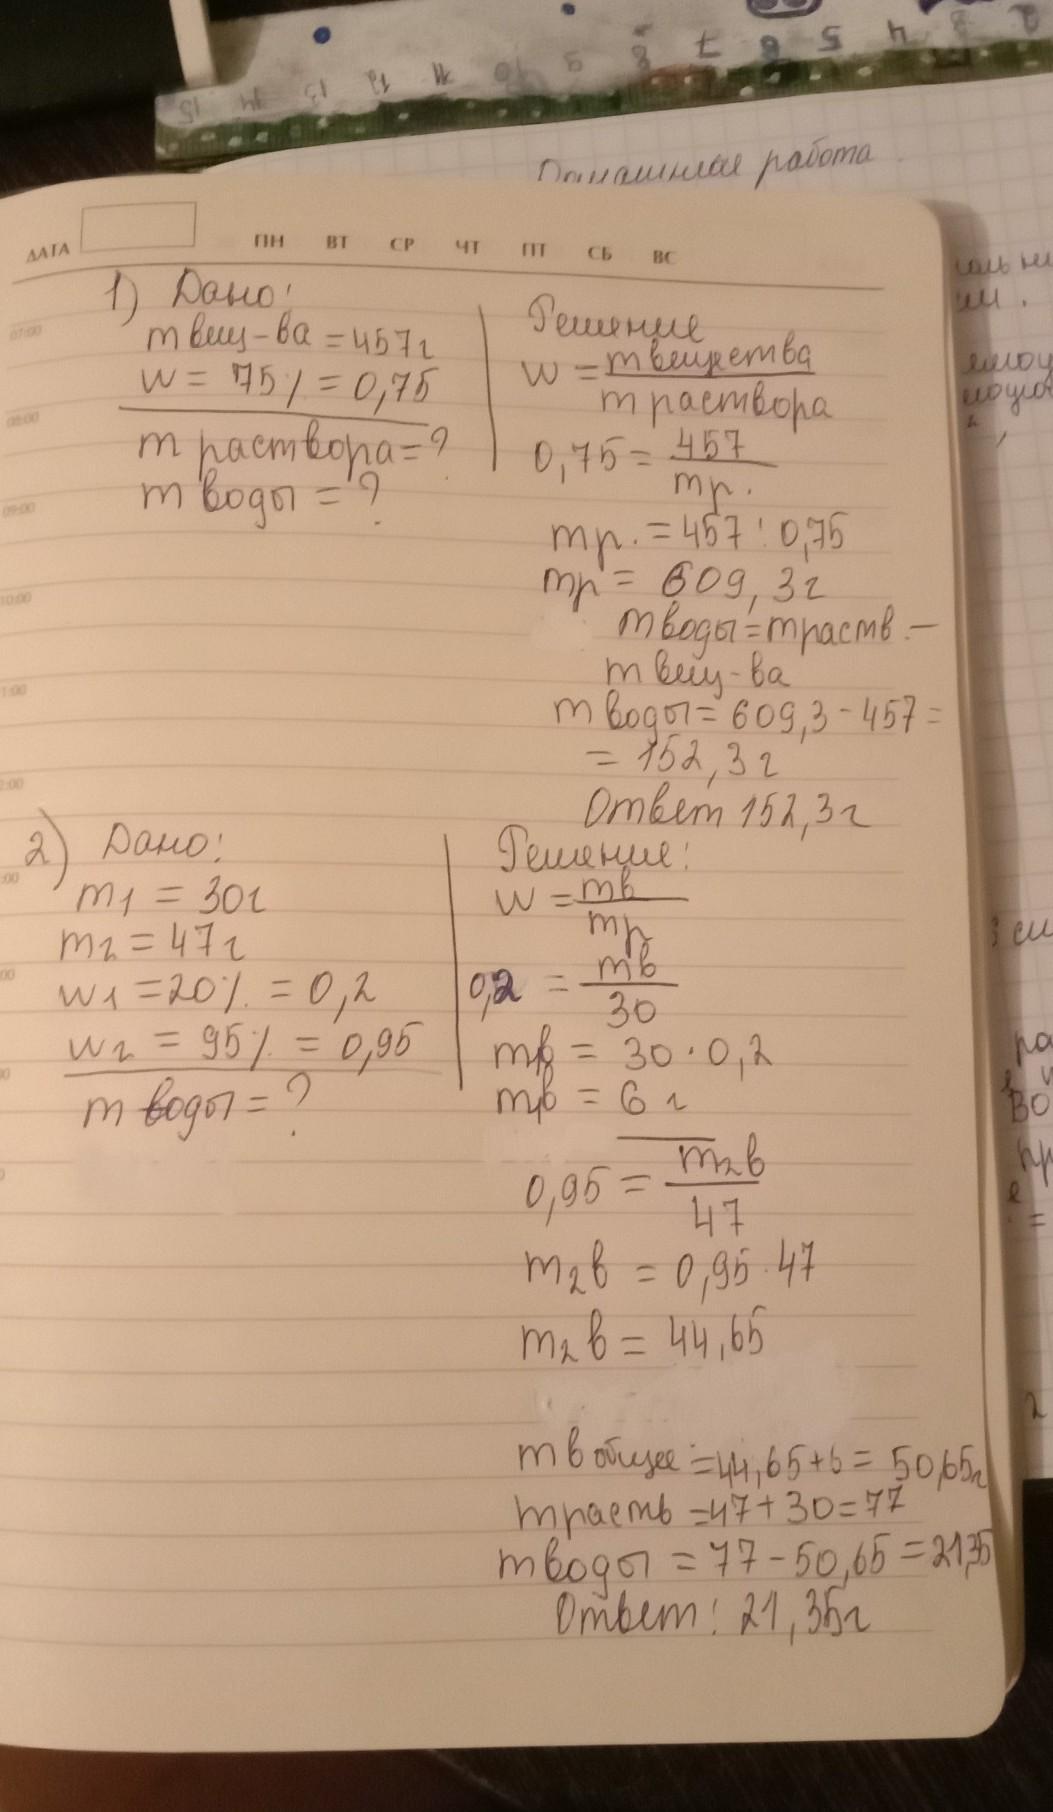 15 14 13 12 11 10 9 8 7 6 5 4
Домашняя работа.
ДАТА ПН ВТ СР ЧТ ПТ СБ ВС
1) Дано:
m вещ-ва = 457г
w = 75% = 0,75
m раствора = ?
m воды = ?
Решение
w = m вещества
m раствора
0,75 = 457
mр.
mр. = 457 : 0,75
mр = 609,3г
m воды = m раств. –
m вещ-ва
m воды = 609,3 - 457 =
= 152,3г
Ответ 152,3г
2) Дано:
m1 = 30г
m2 = 47г
w1 = 20% = 0,2
w2 = 95% = 0,95
m воды = ?
Решение:
w = mв
mр
0,2 = mв
30
mв = 30 · 0,2
mв = 6 г
0,95 = m2в
47
m2в = 0,95 · 47
m2в = 44,65
m в общее = 44,65+6 = 50,65г
m раств = 47 + 30 = 77
m воды = 77 - 50,65 = 21,35
Ответ: 21,35г
07:00
08:00
09:00
10:00